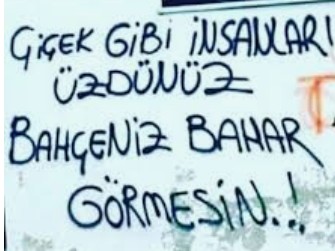 ÇİÇEK GİBİ İNSANLARI
ÜZDÜNÜZ
BAHÇENİZ BAHAR
GÖRMESİN..!